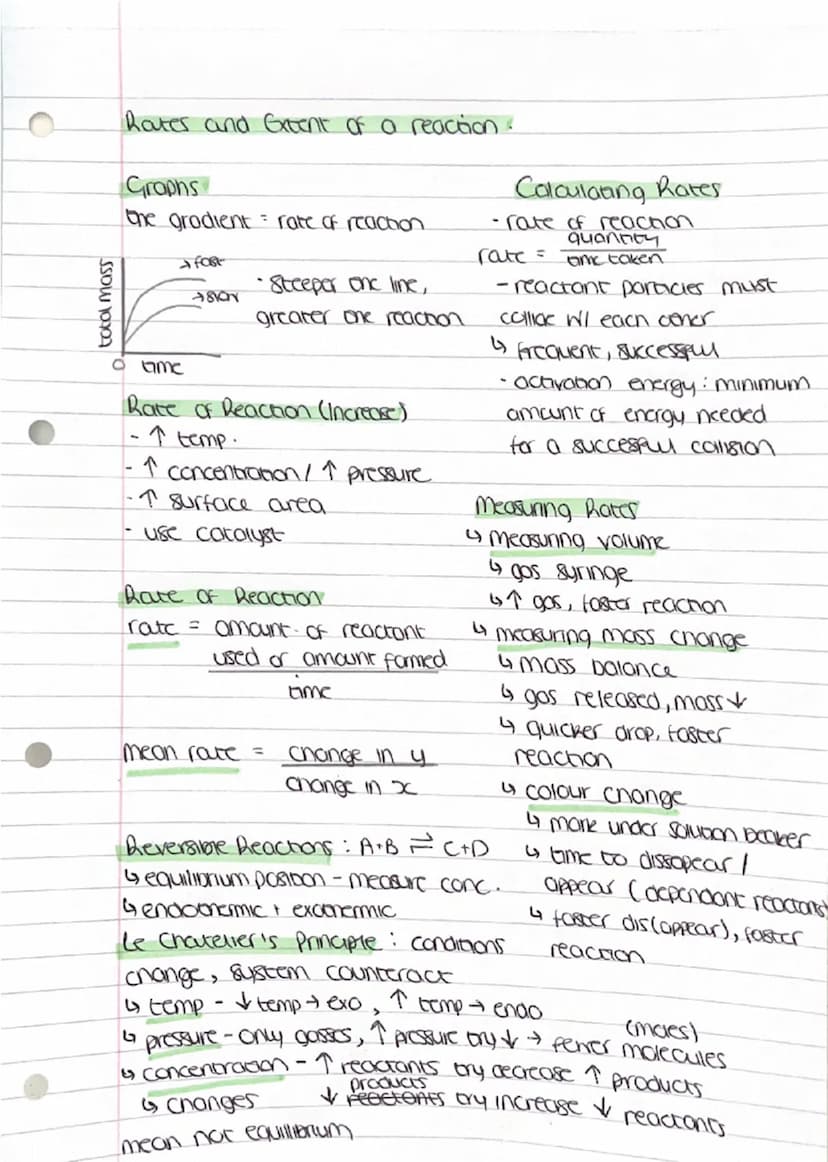 Rates and Extent of a reaction:
Graphs
the gradient = rate of reaction
total mass
→ fast
→ slow
0 time
· Steeper the line,
greater the reaction
Rate of Reaction (Increase)
- ↑ temp.
- ↑ concentration / ↑ pressure
- ↑ surface area
- use catalyst
Rate of Reaction
rate = amount of reactant
used or amount formed
time
mean rate = change in y
change in x
Calculating Rates
· rate of reaction
rate = quantity
time taken
- reactant particles must
collide w/ each other
↳ frequent, successful
· activation energy: minimum
amount of energy needed
for a successful collision
Measuring Rates
↳ measuring volume
↳ gas syringe
↳ ↑ gas, faster reaction
↳ measuring mass change
↳ mass balance
↳ gas released, mass ↓
↳ quicker drop, faster
reaction
↳ colour change
↳ mark under solution beaker
↳ time to dissapear /
appear (dependant reactions)
↳ faster dis(appear), faster
reaction
Reversible Reactions : A+B ⇌ C+D
↳ equilibrium position - measure conc.
↳ endothermic + exothermic
Le Chatelier's Principle : conditions
change, system counteract
↳ temp - ↓ temp → exo, ↑ temp → endo
↳ pressure - only gasses, ↑ pressure try ↓ → fewer molecules (moles)
↳ concentration - ↑ reactants try decrease ↑ products
↓ reactants products try increase ↓ reactants
↳ changes
mean not equilibrium